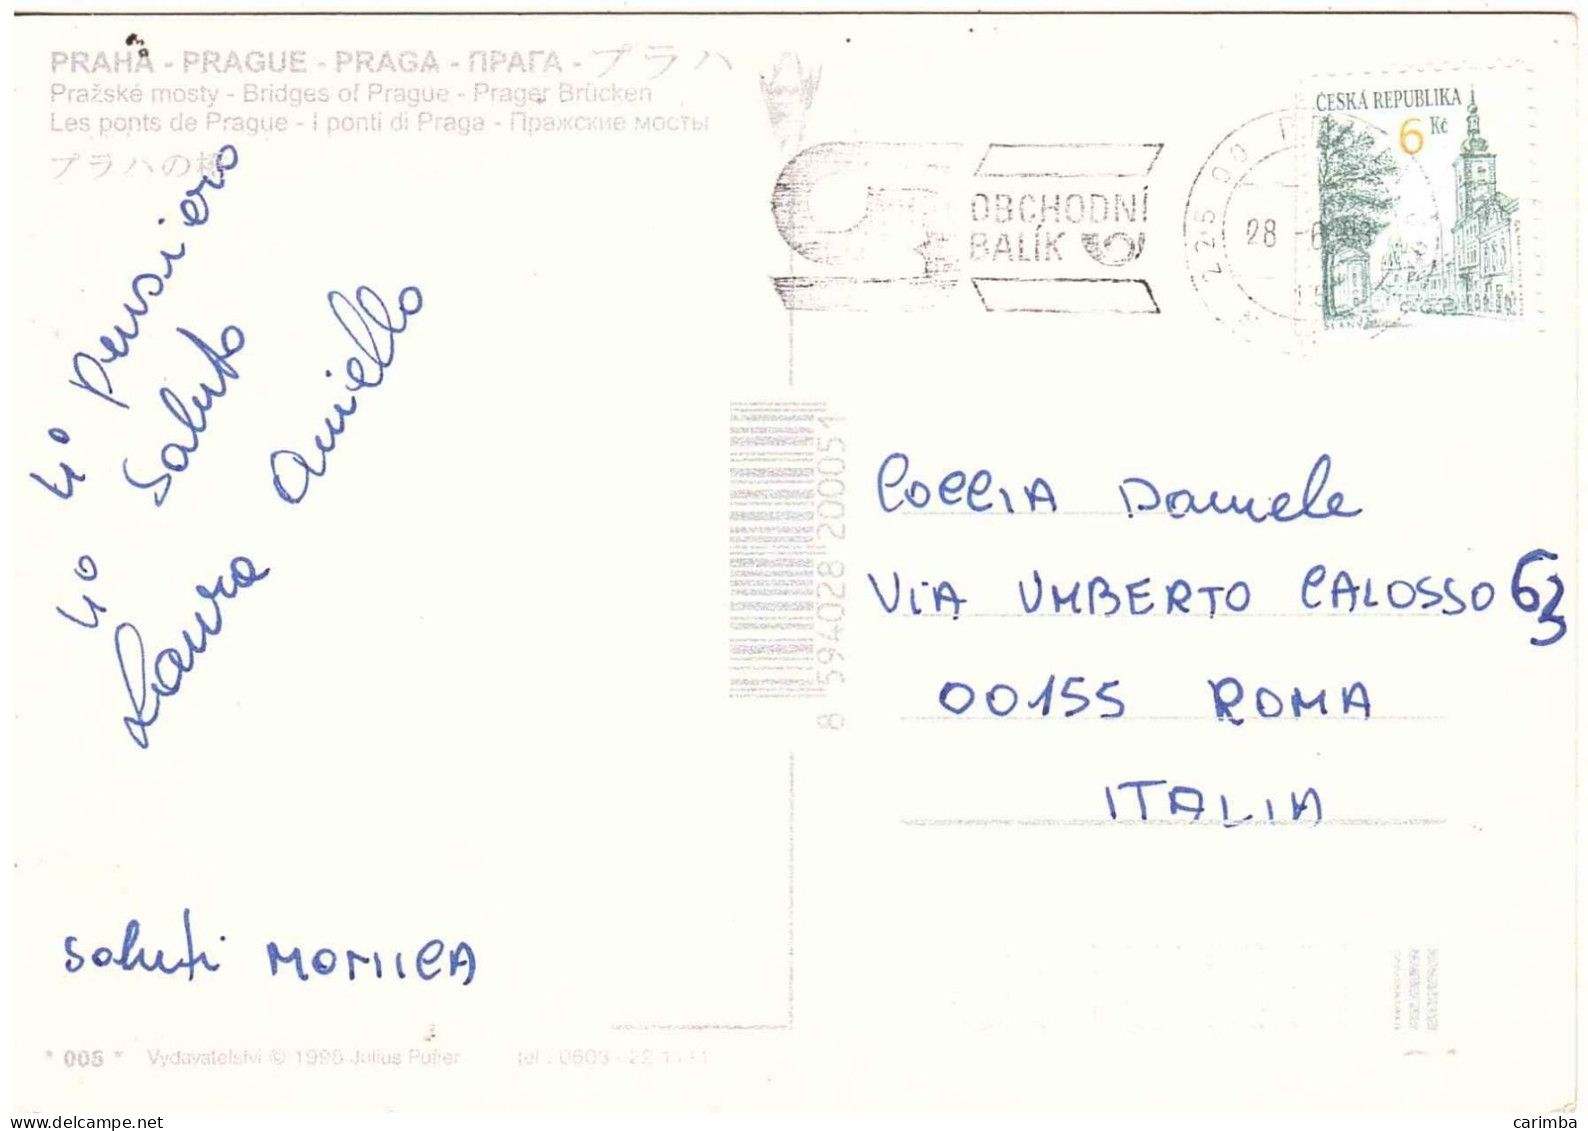 PRAHA - PRAGUE - PRAGA - ПРАГА - プラハ
Pražské mosty - Bridges of Prague - Prager Brücken
Les ponts de Prague - I ponti di Praga - Пражские мосты
プラハの橋
ČESKÁ REPUBLIKA
6 Kč
OBCHODNÍ
BALÍK
225 00
28
Un pensiero
Un saluto
Laura Aniello
Saluti MONICA
8 594028 200051
COCCIA Daniele
VIA UMBERTO CALOSSO 63
00155 ROMA
ITALIA
* 005 * Vydavatelství © 1998 Julius
carimba